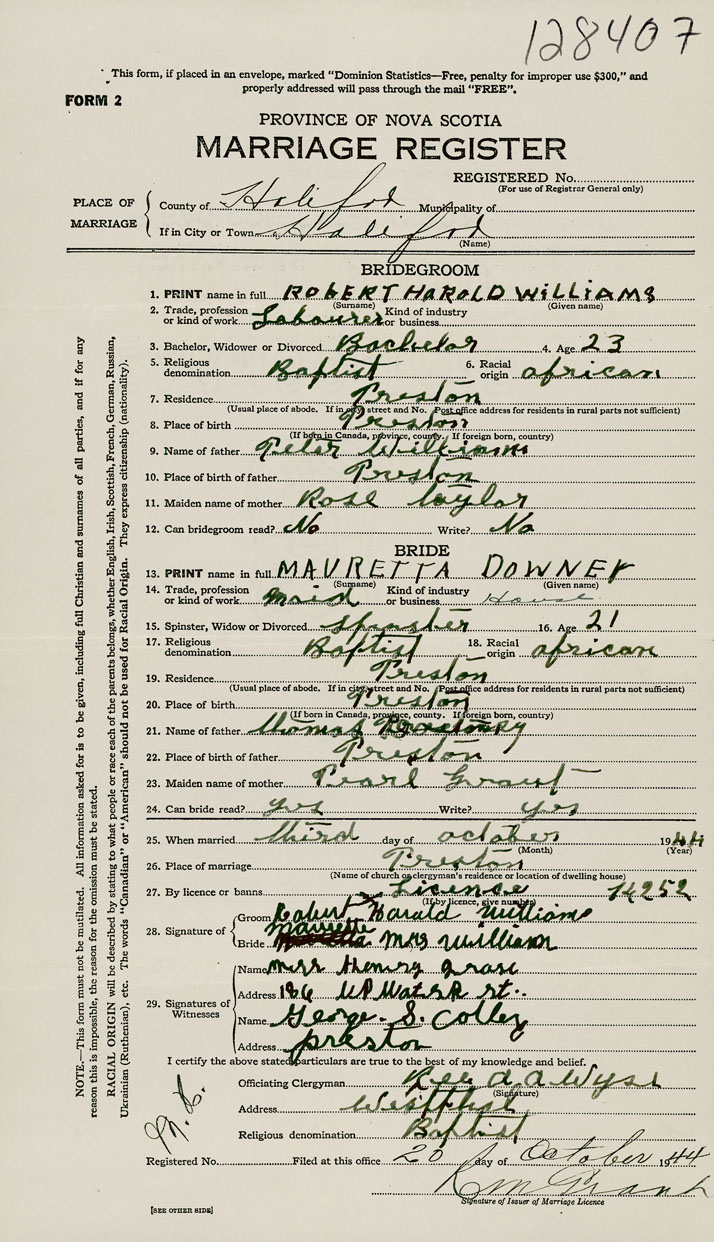 128407
This form, if placed in an envelope, marked "Dominion Statistics—Free, penalty for improper use $300," and
properly addressed will pass through the mail "FREE".
FORM 2
PROVINCE OF NOVA SCOTIA
MARRIAGE REGISTER
REGISTERED No.
(For use of Registrar General only)
PLACE OF MARRIAGE
County of Halifax Municipality of
If in City or Town Halifax
(Name)
BRIDEGROOM
1. PRINT name in full ROBERT HAROLD WILLIAMS
(Surname) (Given name)
2. Trade, profession or kind of work Labourer Kind of industry or business
3. Bachelor, Widower or Divorced Bachelor 4. Age 23
5. Religious denomination Baptist 6. Racial origin african
7. Residence Preston
(Usual place of abode. If in city street and No. Post office address for residents in rural parts not sufficient)
8. Place of birth Preston
(If born in Canada, province, county. If foreign born, country)
9. Name of father Peter Williams
10. Place of birth of father Preston
11. Maiden name of mother Rose Taylor
12. Can bridegroom read? No Write? No
BRIDE
13. PRINT name in full MAURETTA DOWNEY
(Surname) (Given name)
14. Trade, profession or kind of work maid Kind of industry or business House
15. Spinster, Widow or Divorced Spinster 16. Age 21
17. Religious denomination Baptist 18. Racial origin african
19. Residence Preston
(Usual place of abode. If in city street and No. Post office address for residents in rural parts not sufficient)
20. Place of birth Preston
(If born in Canada, province, county. If foreign born, country)
21. Name of father Thomas
22. Place of birth of father Preston
23. Maiden name of mother Pearl Grant
24. Can bride read? yes Write? yes
25. When married third day of october 1944
(Month) (Year)
26. Place of marriage Preston
(Name of church or clergyman's residence or location of dwelling house)
27. By licence or banns Licence 14252
(If by licence, give number)
28. Signature of
Groom Robert Harald Williams
mauretta
Bride Mrs William
29. Signatures of Witnesses
Name mrs Henry
Address 186 UP Water st.
Name George. S. Colley
Address preston
I certify the above stated particulars are true to the best of my knowledge and belief.
Officiating Clergyman Rev d a Wyse
(Signature)
Address Westphal
Religious denomination Baptist
Registered No. Filed at this office 20 day of October 1944
Signature of Issuer of Marriage Licence
[SEE OTHER SIDE]
NOTE.—This form must not be mutilated. All information asked for is to be given, including full Christian and surnames of all parties, and if for any
reason this is impossible, the reason for the omission must be stated.
RACIAL ORIGIN will be described by stating to what people or race each of the parents belongs, whether English, Irish, Scottish, French, German, Russian,
Ukrainian (Ruthenian), etc. The words "Canadian" or "American" should not be used for Racial Origin. They express citizenship (nationality).